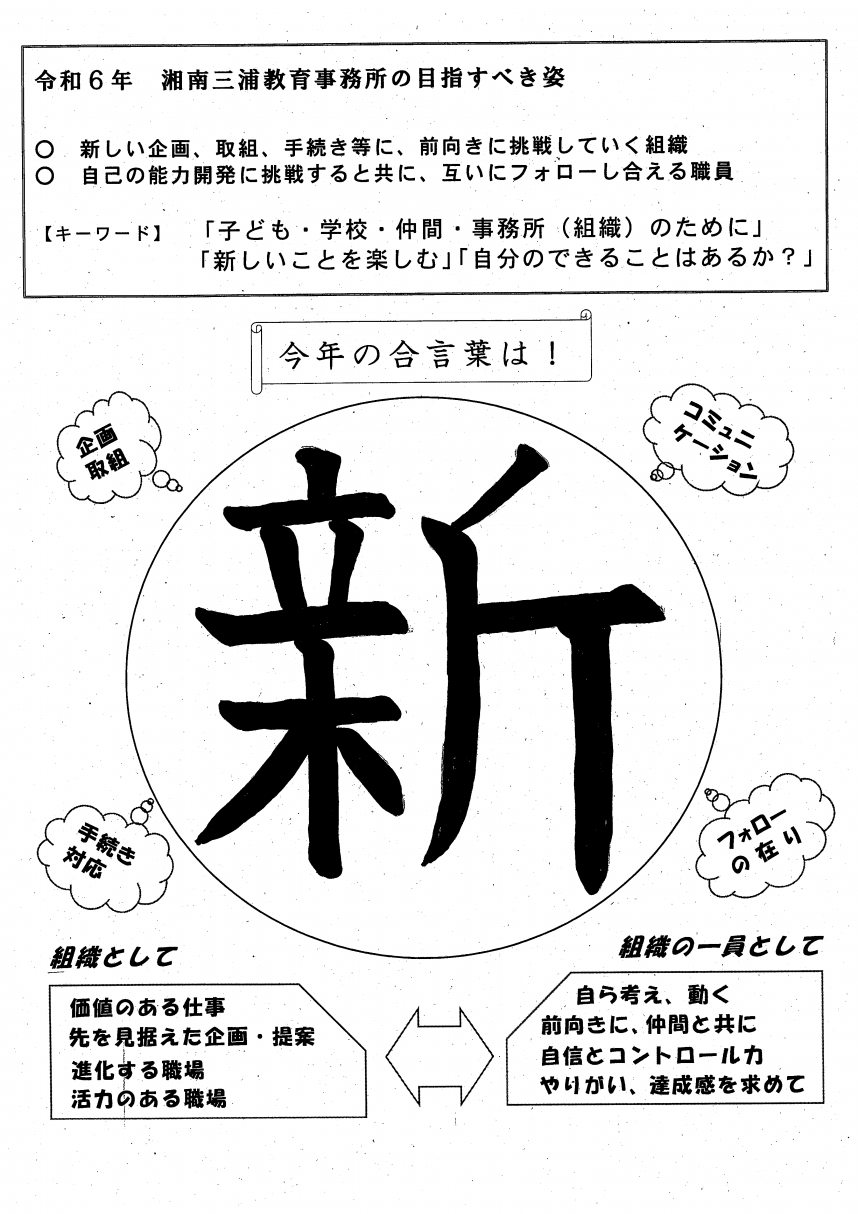 令和６年　湘南三浦教育事務所の目指すべき姿
○　新しい企画、取組、手続き等に、前向きに挑戦していく組織
○　自己の能力開発に挑戦すると共に、互いにフォローし合える職員
【キーワード】　「子ども・学校・仲間・事務所（組織）のために」
「新しいことを楽しむ」「自分のできることはあるか？」
今年の合言葉は！
企画
取組
コミュニ
ケーション
新
手続き
対応
フォロー
の在り
組織として
価値のある仕事
先を見据えた企画・提案
進化する職場
活力のある職場
組織の一員として
自ら考え、動く
前向きに、仲間と共に
自信とコントロール力
やりがい、達成感を求めて